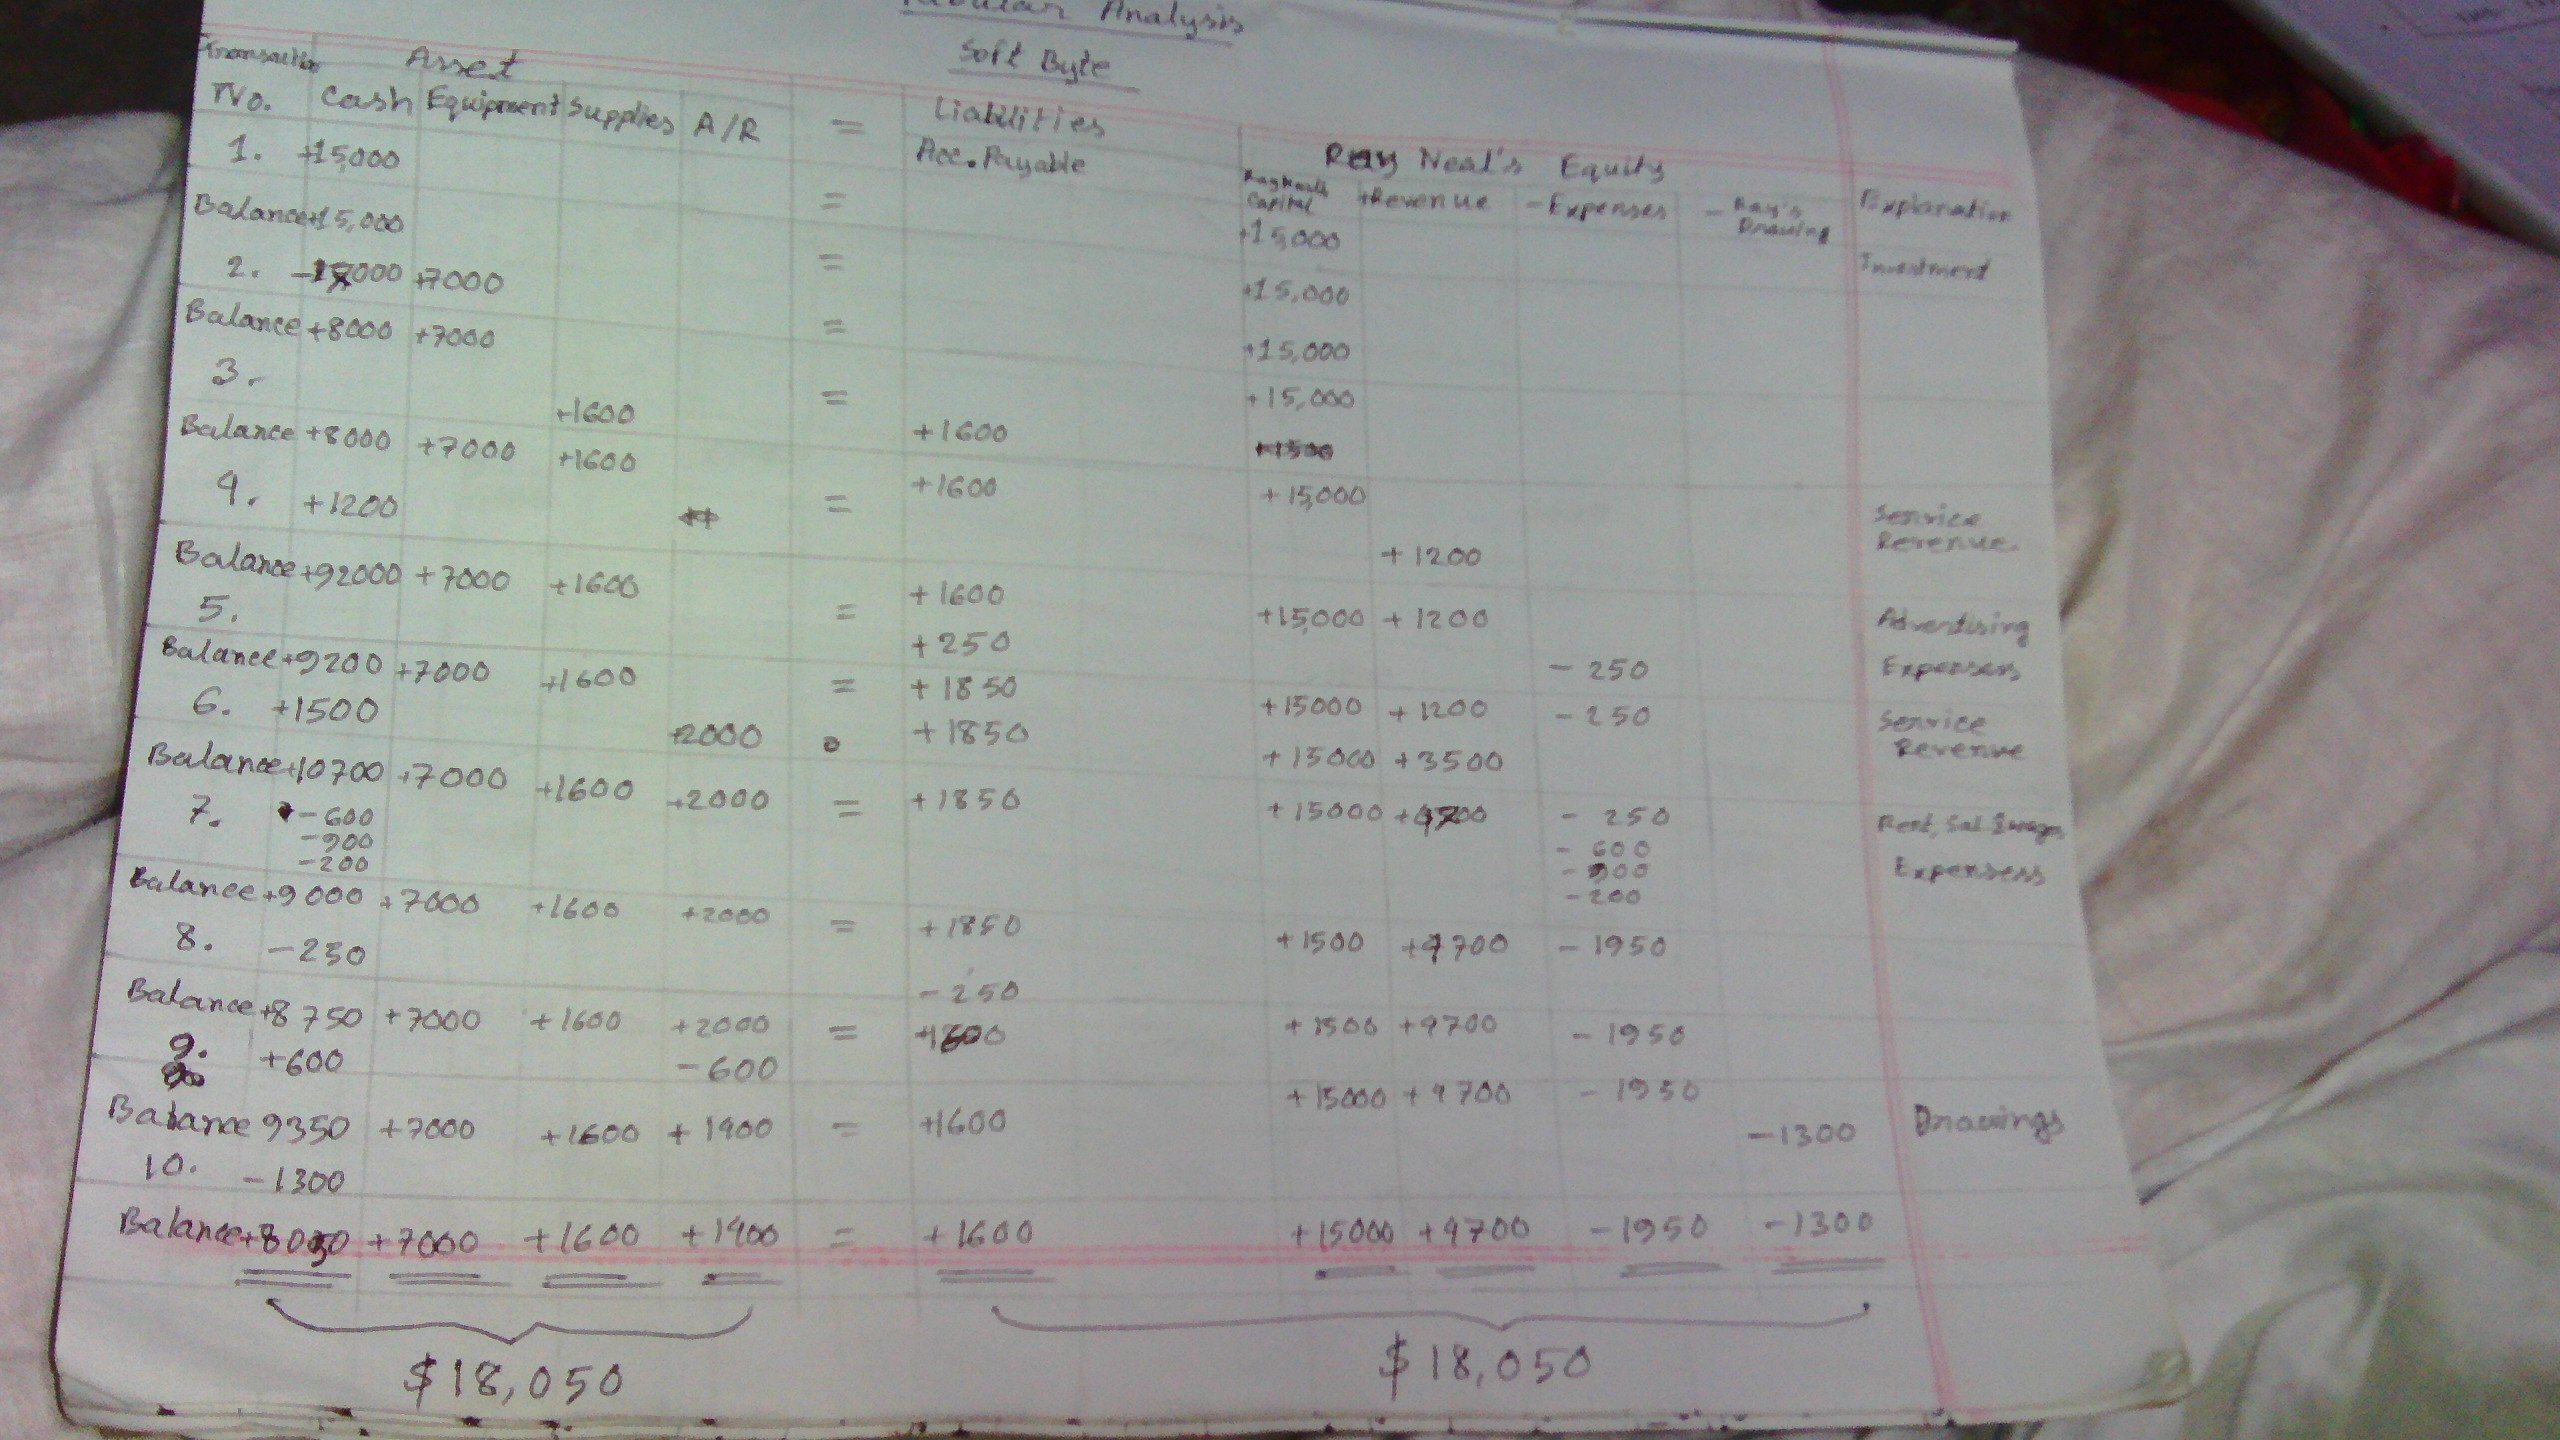 Tabular Analysis
Soft Byte
Transaction Asset
No. Cash Equipment Supplies A/R = Liabilities
Acc. Payable Ray Neal's Equity
Capital +Revenue - Expenses - Ray's Drawing Explanation
1. +15,000 = +15,000 Investment
Balance +15,000 = +15,000
2. -7000 +7000 +15,000
Balance +8000 +7000 = +15,000
3. +1600 = +1600
Balance +8000 +7000 +1600 +1600 +15,000
4. +1200 = +1200 Service Revenue
Balance +92000 +7000 +1600 = +1600 +15,000 +1200
5. +250 - 250 Advertising Expensers
Balance +9200 +7000 +1600 = +1850 +15000 +1200 - 250
6. +1500 +2000 +1850 +15000 +3500 Service Revenue
Balance +10700 +7000 +1600 +2000 = +1850 +15000 +4700 - 250
7. -600 - 600 Rent, Sal & wages
-900 - 900 Expensess
-200 - 200
Balance +9000 +7000 +1600 +2000 = +1850 +1500 +4700 - 1950
8. -250 - 250
Balance +8750 +7000 +1600 +2000 = +1600 +1500 +4700 - 1950
9. +600 - 600
Balance 9350 +7000 +1600 +1400 = +1600 +15000 +4700 - 1950
10. -1300 -1300 Drawings
Balance +8050 +7000 +1600 +1400 = +1600 +15000 +4700 -1950 -1300
$18,050 $18,050